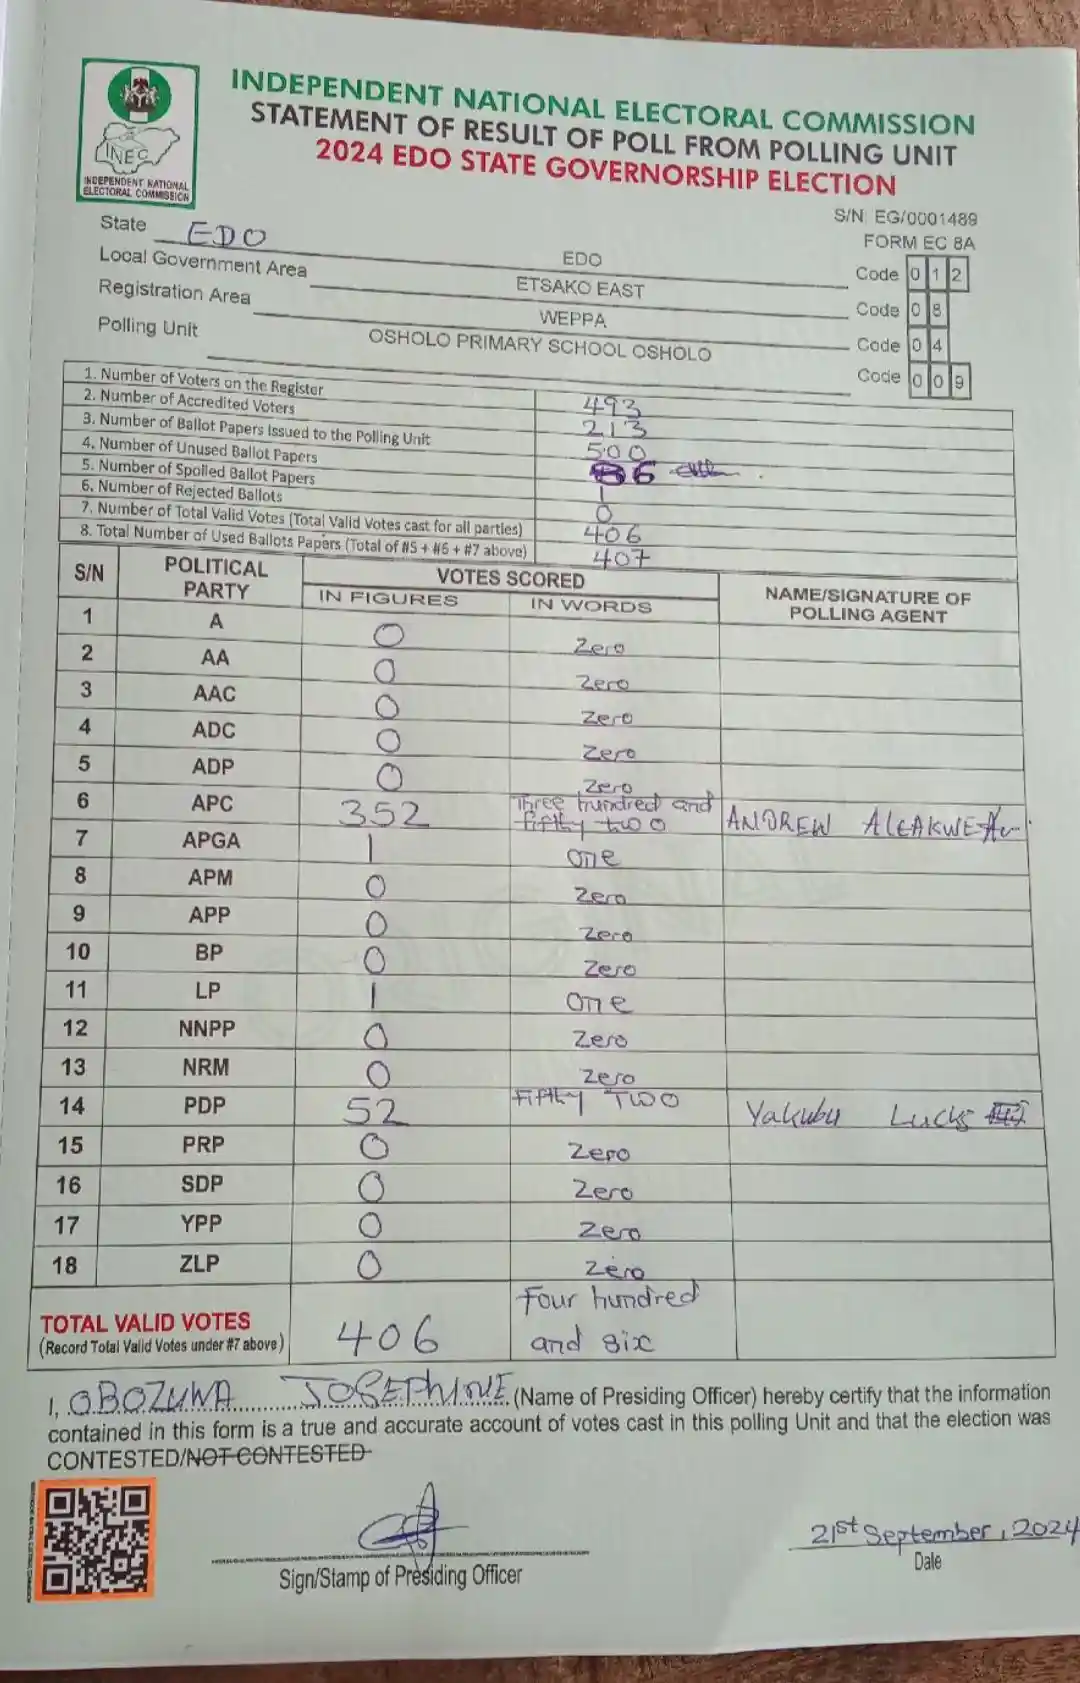 INDEPENDENT NATIONAL ELECTORAL COMMISSION
STATEMENT OF RESULT OF POLL FROM POLLING UNIT
2024 EDO STATE GOVERNORSHIP ELECTION
INEC
INDEPENDENT NATIONAL
ELECTORAL COMMISSION
S/N EG/0001489
FORM EC 8A
State EDO EDO Code 0 1 2
Local Government Area ETSAKO EAST Code 0 8
Registration Area WEPPA Code 0 4
Polling Unit OSHOLO PRIMARY SCHOOL OSHOLO Code 0 0 9
1. Number of Voters on the Register 493
2. Number of Accredited Voters 213
3. Number of Ballot Papers Issued to the Polling Unit 500
4. Number of Unused Ballot Papers 6
5. Number of Spoiled Ballot Papers 1
6. Number of Rejected Ballots 0
7. Number of Total Valid Votes (Total Valid Votes cast for all parties) 406
8. Total Number of Used Ballots Papers (Total of #5 + #6 + #7 above) 407
S/N POLITICAL PARTY VOTES SCORED NAME/SIGNATURE OF POLLING AGENT
IN FIGURES IN WORDS
1 A 0 Zero
2 AA 0 Zero
3 AAC 0 Zero
4 ADC 0 Zero
5 ADP 0 Zero
6 APC 352 Three hundred and fifthy two ANDREW
7 APGA 1 one
8 APM 0 Zero
9 APP 0 Zero
10 BP 0 Zero
11 LP 1 one
12 NNPP 0 Zero
13 NRM 0 Zero
14 PDP 52 Fifthy TWO Yakubu
15 PRP 0 Zero
16 SDP 0 Zero
17 YPP 0 Zero
18 ZLP 0 Zero
TOTAL VALID VOTES 406 Four hundred and six
(Record Total Valid Votes under #7 above)
I, OBOZUWA JOSEPHINE (Name of Presiding Officer) hereby certify that the information
contained in this form is a true and accurate account of votes cast in this polling Unit and that the election was
CONTESTED/NOT CONTESTED
21st September, 2024
Sign/Stamp of Presiding Officer
Date